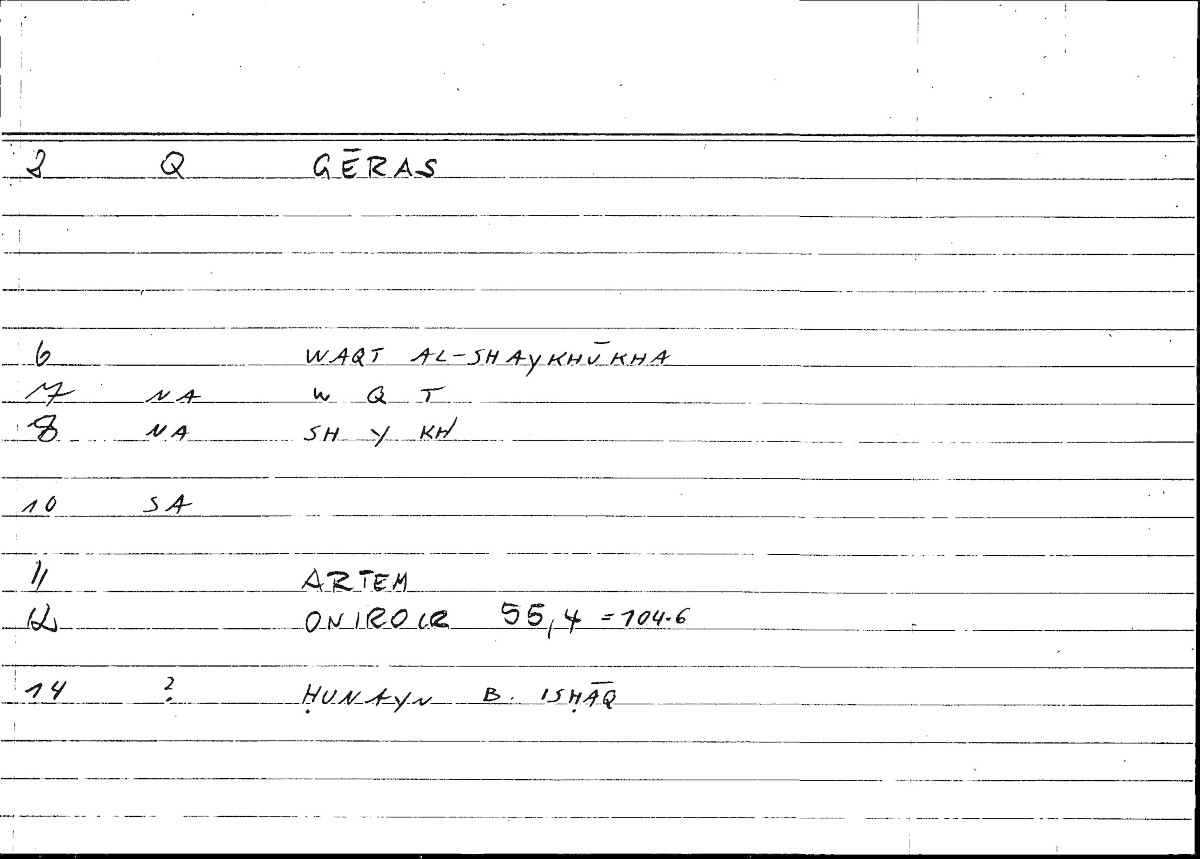 2 Q GĒRAS
6 WAQT AL-SHAYKHŪKHA
7 NA W Q T
8 NA SH Y KH
10 SA
11 ARTEM
12 ONIROCR 55,4 = 104.6
14 ? ḤUNAYN B. ISḤĀQ